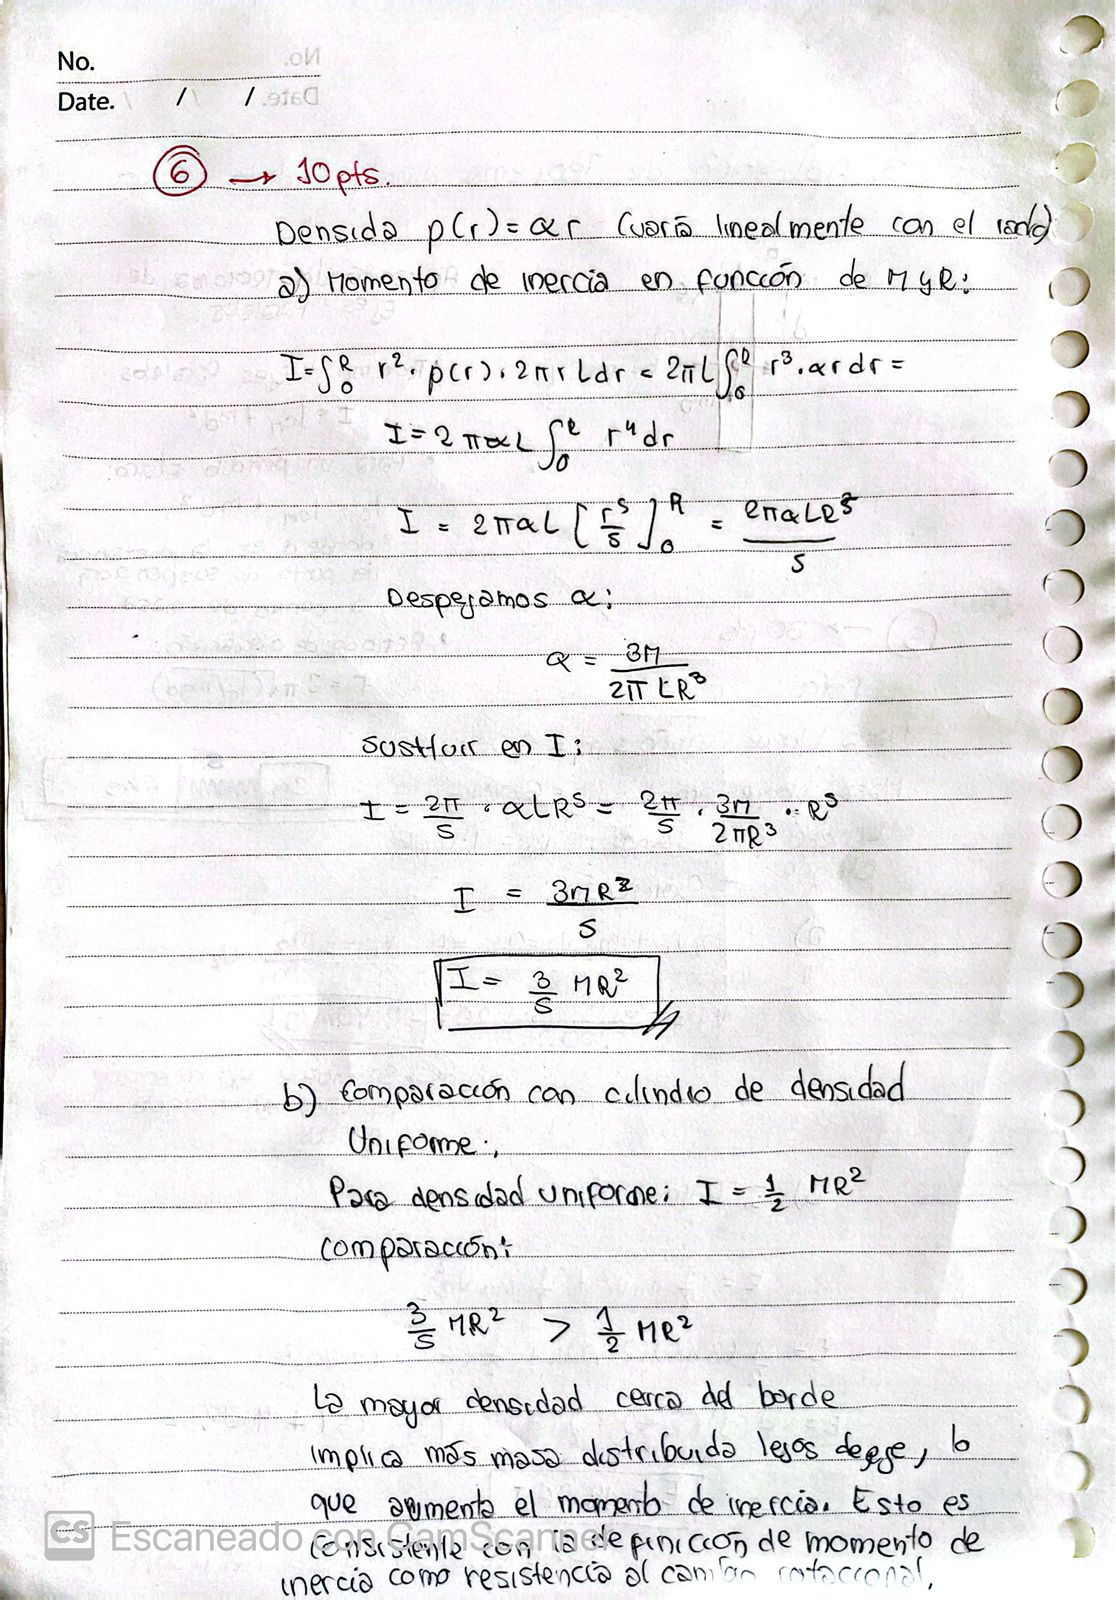 No.
Date. / /
⑥ → 10pts.
Densida ρ(r) = αr (varía linealmente con el radio)
a) Momento de inercia en función de M y R:
I = ∫₀ᴿ r² · ρ(r) · 2πr L dr = 2πL ∫₀ᴿ r³ · αr dr =
I = 2παL ∫₀ᴿ r⁴ dr
I = 2παL [r⁵/5]₀ᴿ = 2παLR⁵/5
Despejamos α:
α = 3M/2πLR³
Sustituir en I:
I = 2π/5 · αLR⁵ = 2π/5 · 3M/2πR³ · R⁵
I = 3MR²/5
I = 3/5 MR²
b) Comparación con cilindro de densidad
Uniforme:
Para densidad uniforme: I = 1/2 MR²
Comparación:
3/5 MR² > 1/2 MR²
La mayor densidad cerca del borde
implica más masa distribuida lejos de eje, lo
que aumenta el momento de inercia. Esto es
consistente con la definición de momento de
inercia como resistencia al rotacional.
CS Escaneado con CamScanner